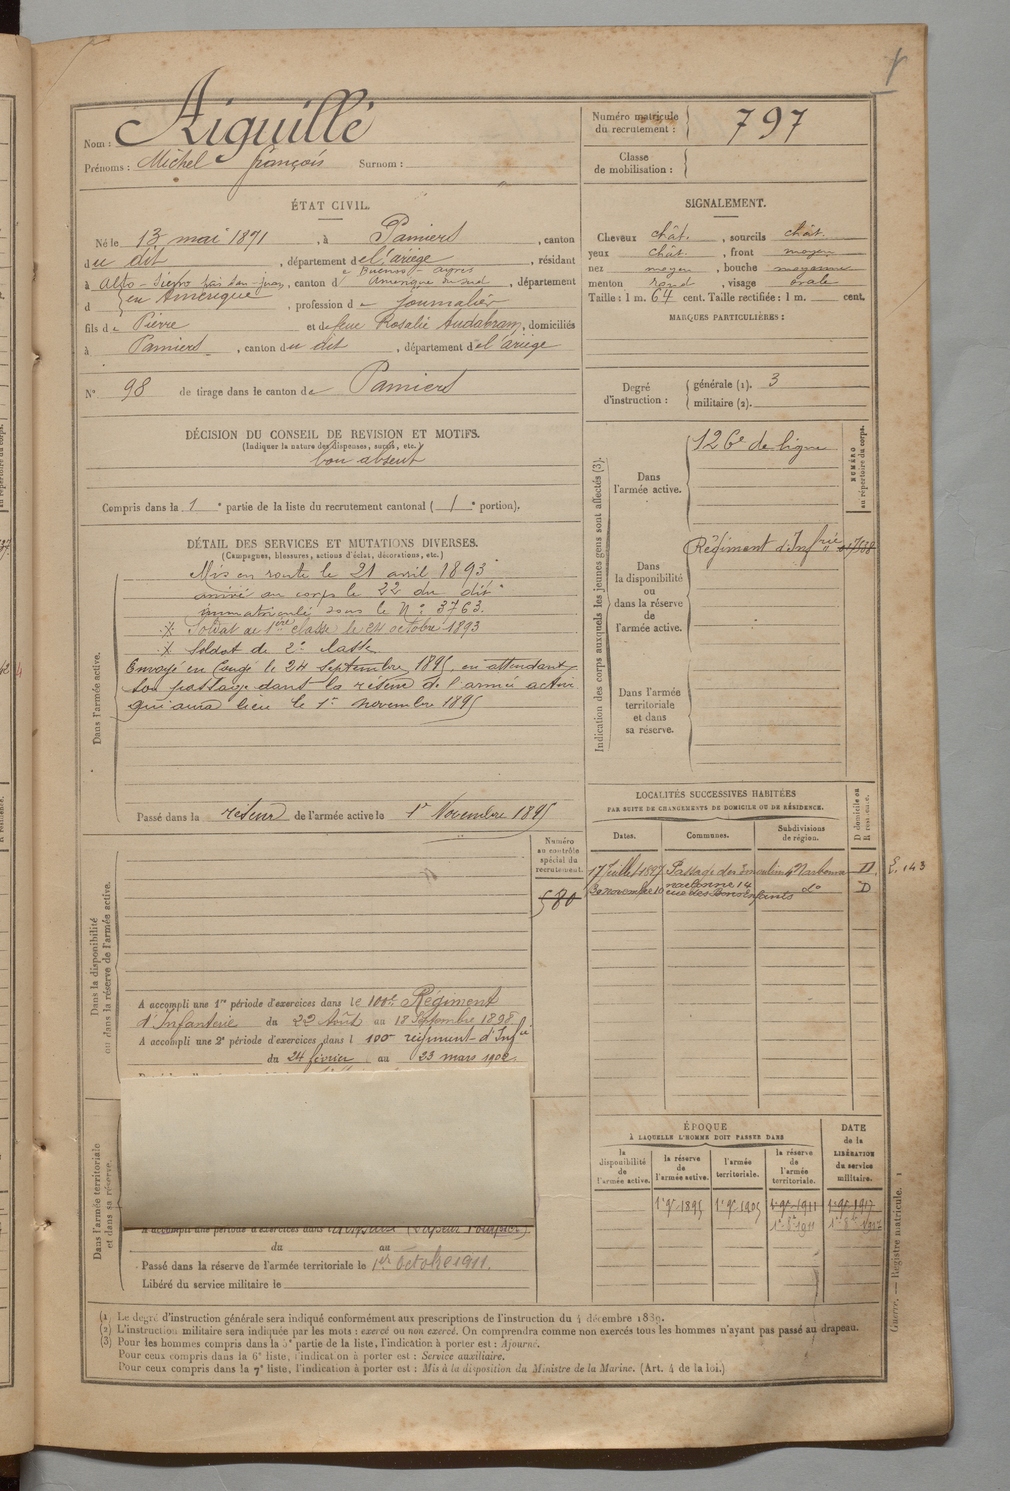 Nom : Aiguillé
Prénoms : Michel françois Surnom :
Numéro matricule du recrutement : 797
Classe de mobilisation :
ÉTAT CIVIL.
Né le 13 mai 1871, à Pamiers, canton
du dit, département de l'ariège, résidant
à Alto-, canton d'Amérique du sud, département
Buenos-ayres
d en Amérique, profession de journalier
fils de Pierre et de feue Rosalie Audabram, domiciliés
à Pamiers, canton du dit, département de l'ariège
N° 98 de tirage dans le canton de Pamiers
SIGNALEMENT.
Cheveux chât., sourcils chât.
yeux chât., front moyen
nez moyen, bouche moyenne
menton rond, visage ovale
Taille : 1 m. 64 cent. Taille rectifiée : 1 m. cent.
MARQUES PARTICULIÈRES :
Degré d'instruction : générale (1). 3
militaire (2).
DÉCISION DU CONSEIL DE REVISION ET MOTIFS.
(Indiquer la nature des dispenses, sursis, etc.)
bon absent
Compris dans la 1e partie de la liste du recrutement cantonal (1e portion).
DÉTAIL DES SERVICES ET MUTATIONS DIVERSES.
(Campagnes, blessures, actions d'éclat, décorations, etc.)
Dans l'armée active.
Mis en route le 21 avril 1893
arrivé au corps le 22 du dit
immatriculé sous le N° 3763.
Soldat de 1ère classe le 24 octobre 1893
Soldat de 2e classe
Envoyé en Congé le 24 Septembre 1895, en attendant
son passage dans la réserve de l'armée active
qui aura lieu le 1er novembre 1895
Passé dans la réserve de l'armée active le 1er Novembre 1895
Indication des corps auxquels les jeunes gens sont affectés (3).
NUMÉRO au répertoire du corps.
Dans l'armée active.
126e de ligne
Dans la disponibilité ou dans la réserve de l'armée active.
Régiment d'Infrie
Dans l'armée territoriale et dans sa réserve.
LOCALITÉS SUCCESSIVES HABITÉES
PAR SUITE DE CHANGEMENTS DE DOMICILE OU DE RÉSIDENCE.
Dates. Communes. Subdivisions de région. D domicile ou R résidence.
17 Juillet 1897 Passage des moulins Narbonne D
30 novembre 10 narbonne 14 do D
rue des Bons Enfants
Dans la disponibilité ou dans la réserve de l'armée active.
Numéro au contrôle spécial du recrutement.
580
A accompli une 1re période d'exercices dans le 100e Régiment
d'Infanterie du 22 Août au 18 Septembre 1898
A accompli une 2e période d'exercices dans l 100e régiment d'Infie
du 24 février au 23 mars 1902
Dans l'armée territoriale et dans sa réserve.
A accompli une période d'exercices dans
du au
Passé dans la réserve de l'armée territoriale le 1er octobre 1911.
Libéré du service militaire le
ÉPOQUE
À LAQUELLE L'HOMME DOIT PASSER DANS
la disponibilité de l'armée active. la réserve de l'armée active. l'armée territoriale. la réserve de l'armée territoriale.
DATE de la LIBÉRATION du service militaire.
1er 9bre 1895 1er 9bre 1905 1er 9bre 1911 1er 9bre 1917
1er 8bre 1911 1er 8bre 1917
(1) Le degré d'instruction générale sera indiqué conformément aux prescriptions de l'instruction du 4 décembre 1889.
(2) L'instruction militaire sera indiquée par les mots : exercé ou non exercé. On comprendra comme non exercés tous les hommes n'ayant pas passé au drapeau.
(3) Pour les hommes compris dans la 5e partie de la liste, l'indication à porter est : Ajourné.
Pour ceux compris dans la 6e liste, l'indication à porter est : Service auxiliaire.
Pour ceux compris dans la 7e liste, l'indication à porter est : Mis à la disposition du Ministre de la Marine. (Art. 4 de la loi.)
Guerre. — Registre matricule. 1